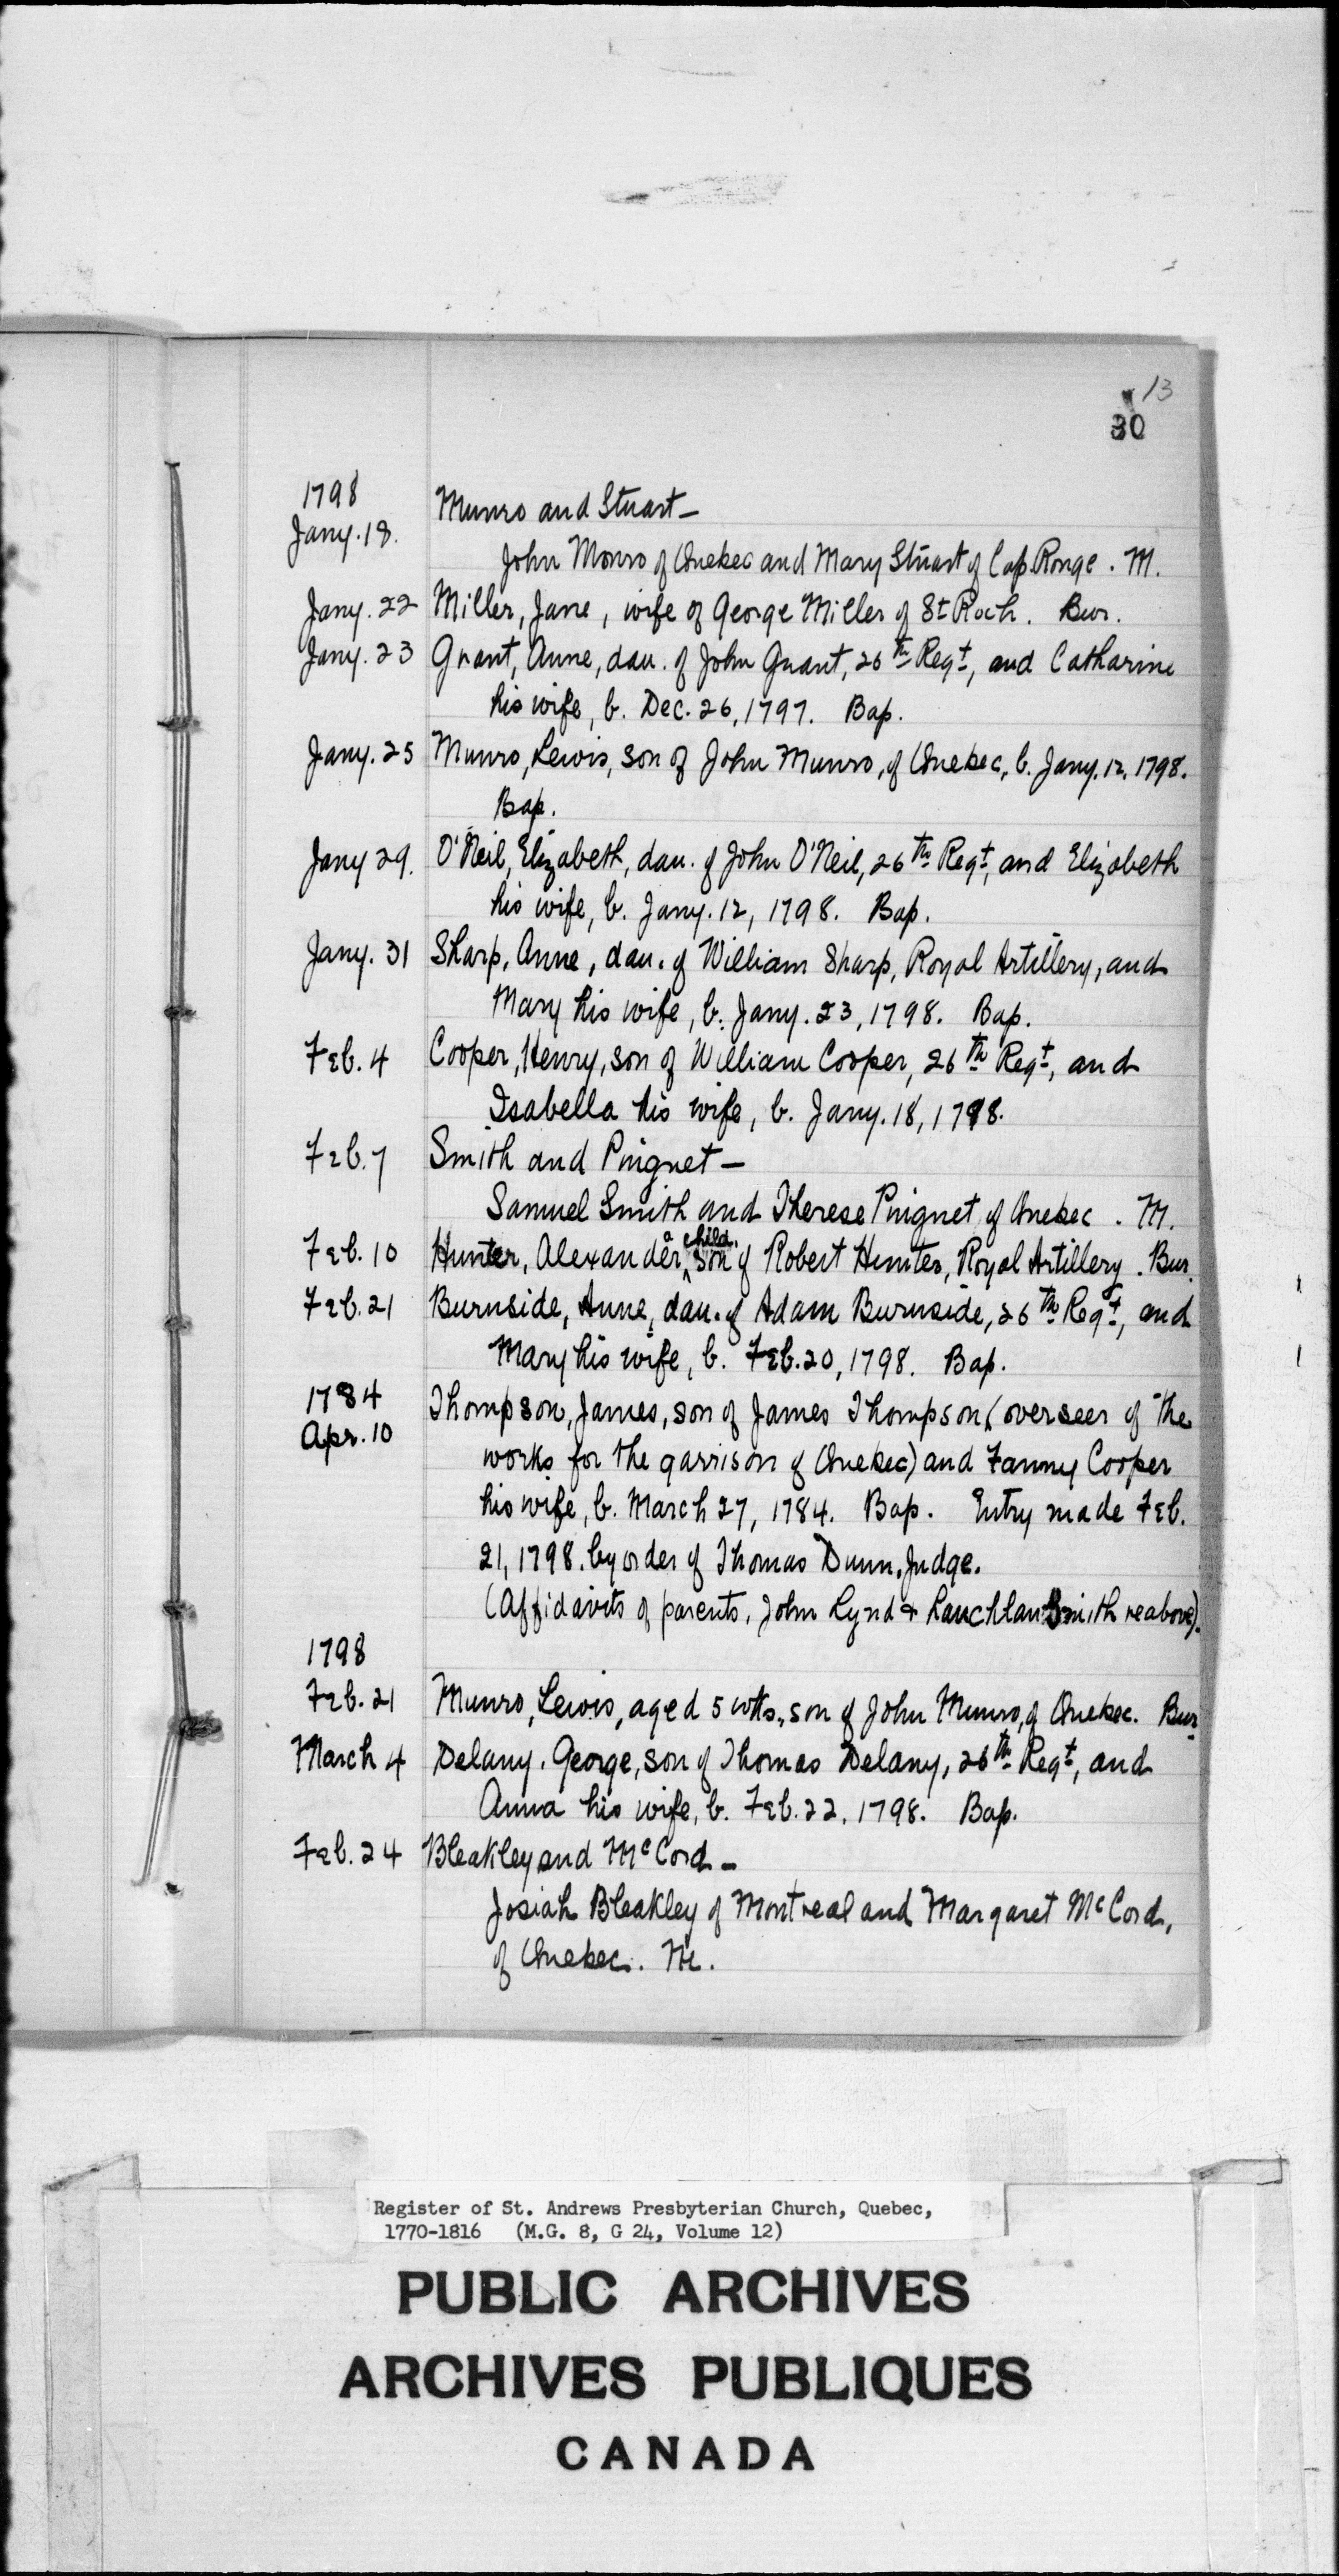 13
30
1798
Jany. 18. Munro and Stuart—
John Monro of Quebec and Mary Stuart of Cap Rouge. M.
Jany. 22 Miller, Jane, wife of George Miller of St Roch. Bur.
Jany. 23 Grant, Anne, dau. of John Grant, 26th Regt, and Catharine
his wife, b. Dec. 26, 1797. Bap.
Jany. 25 Munro, Lewis, son of John Munro, of Quebec, b. Jany. 12, 1798.
Bap.
Jany 29. O'Neil, Elizabeth, dau. of John O'Neil, 26th Regt, and Elizabeth
his wife, b. Jany. 12, 1798. Bap.
Jany. 31 Sharp, Anne, dau. of William Sharp, Royal Artillery, and
Mary his wife, b. Jany. 23, 1798. Bap.
Feb. 4 Cooper, Henry, son of William Cooper, 26th Regt, and
Isabella his wife, b. Jany. 18, 1798.
Feb. 7 Smith and Pinguet—
Samuel Smith and Therese Pinguet of Quebec. M.
Feb. 10 Hunter, Alexander, a child, son of Robert Hunter, Royal Artillery. Bur.
Feb. 21 Burnside, Anne, dau. of Adam Burnside, 26th Regt, and
Mary his wife, b. Feb. 20, 1798. Bap.
1784
Apr. 10 Thompson, James, son of James Thompson (overseer of the
works for the garrison of Quebec) and Fanny Cooper
his wife, b. March 27, 1784. Bap. Entry made Feb.
21, 1798. by order of Thomas Dunn, Judge.
(Affidavits of parents, John Lynd & Lauchlan Smith re above).
1798
Feb. 21 Munro, Lewis, aged 5 wks., son of John Munro, of Quebec. Bur
March 4 Delany, George, son of Thomas Delany, 26th Regt, and
Anna his wife, b. Feb. 22, 1798. Bap.
Feb. 24 Bleakley and McCord—
Josiah Bleakley of Montreal and Margaret McCord,
of Quebec. M.
Register of St. Andrews Presbyterian Church, Quebec,
1770-1816 (M.G. 8, G 24, Volume 12)
PUBLIC ARCHIVES
ARCHIVES PUBLIQUES
CANADA